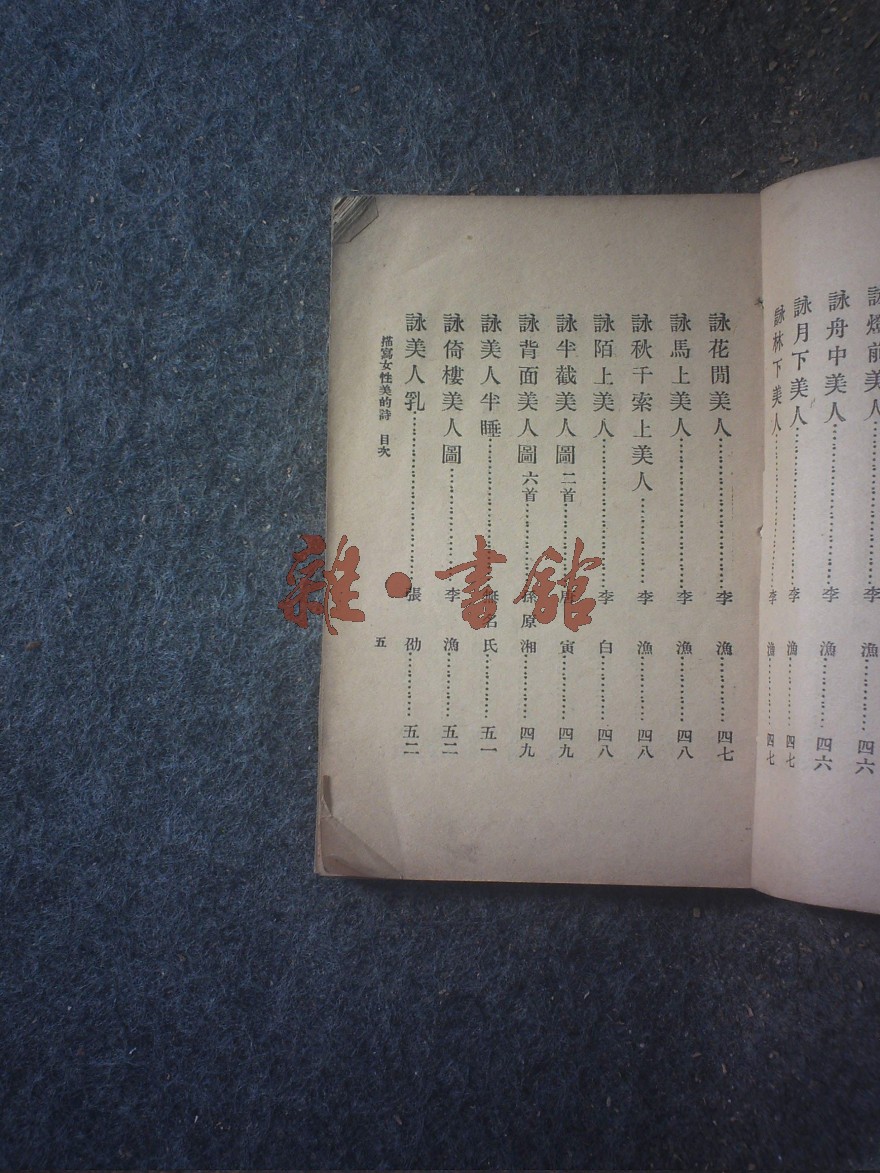 詠燈前美人……李漁……四六
詠舟中美人……李漁……四六
詠月下美人……李漁……四七
詠林下美人……李漁……四七
詠花閒美人……李漁……四七
詠馬上美人……李漁……四八
詠秋千索上美人……李漁……四八
詠陌上美人……李白……四八
詠半截美人圖 二首……唐寅……四九
詠背面美人圖 六首……孫原湘……四九
詠美人半睡……無名氏……五一
詠倚樓美人圖……李漁……五二
詠美人乳……張劭……五二
描寫女性美的詩 目次
五
雜·書館